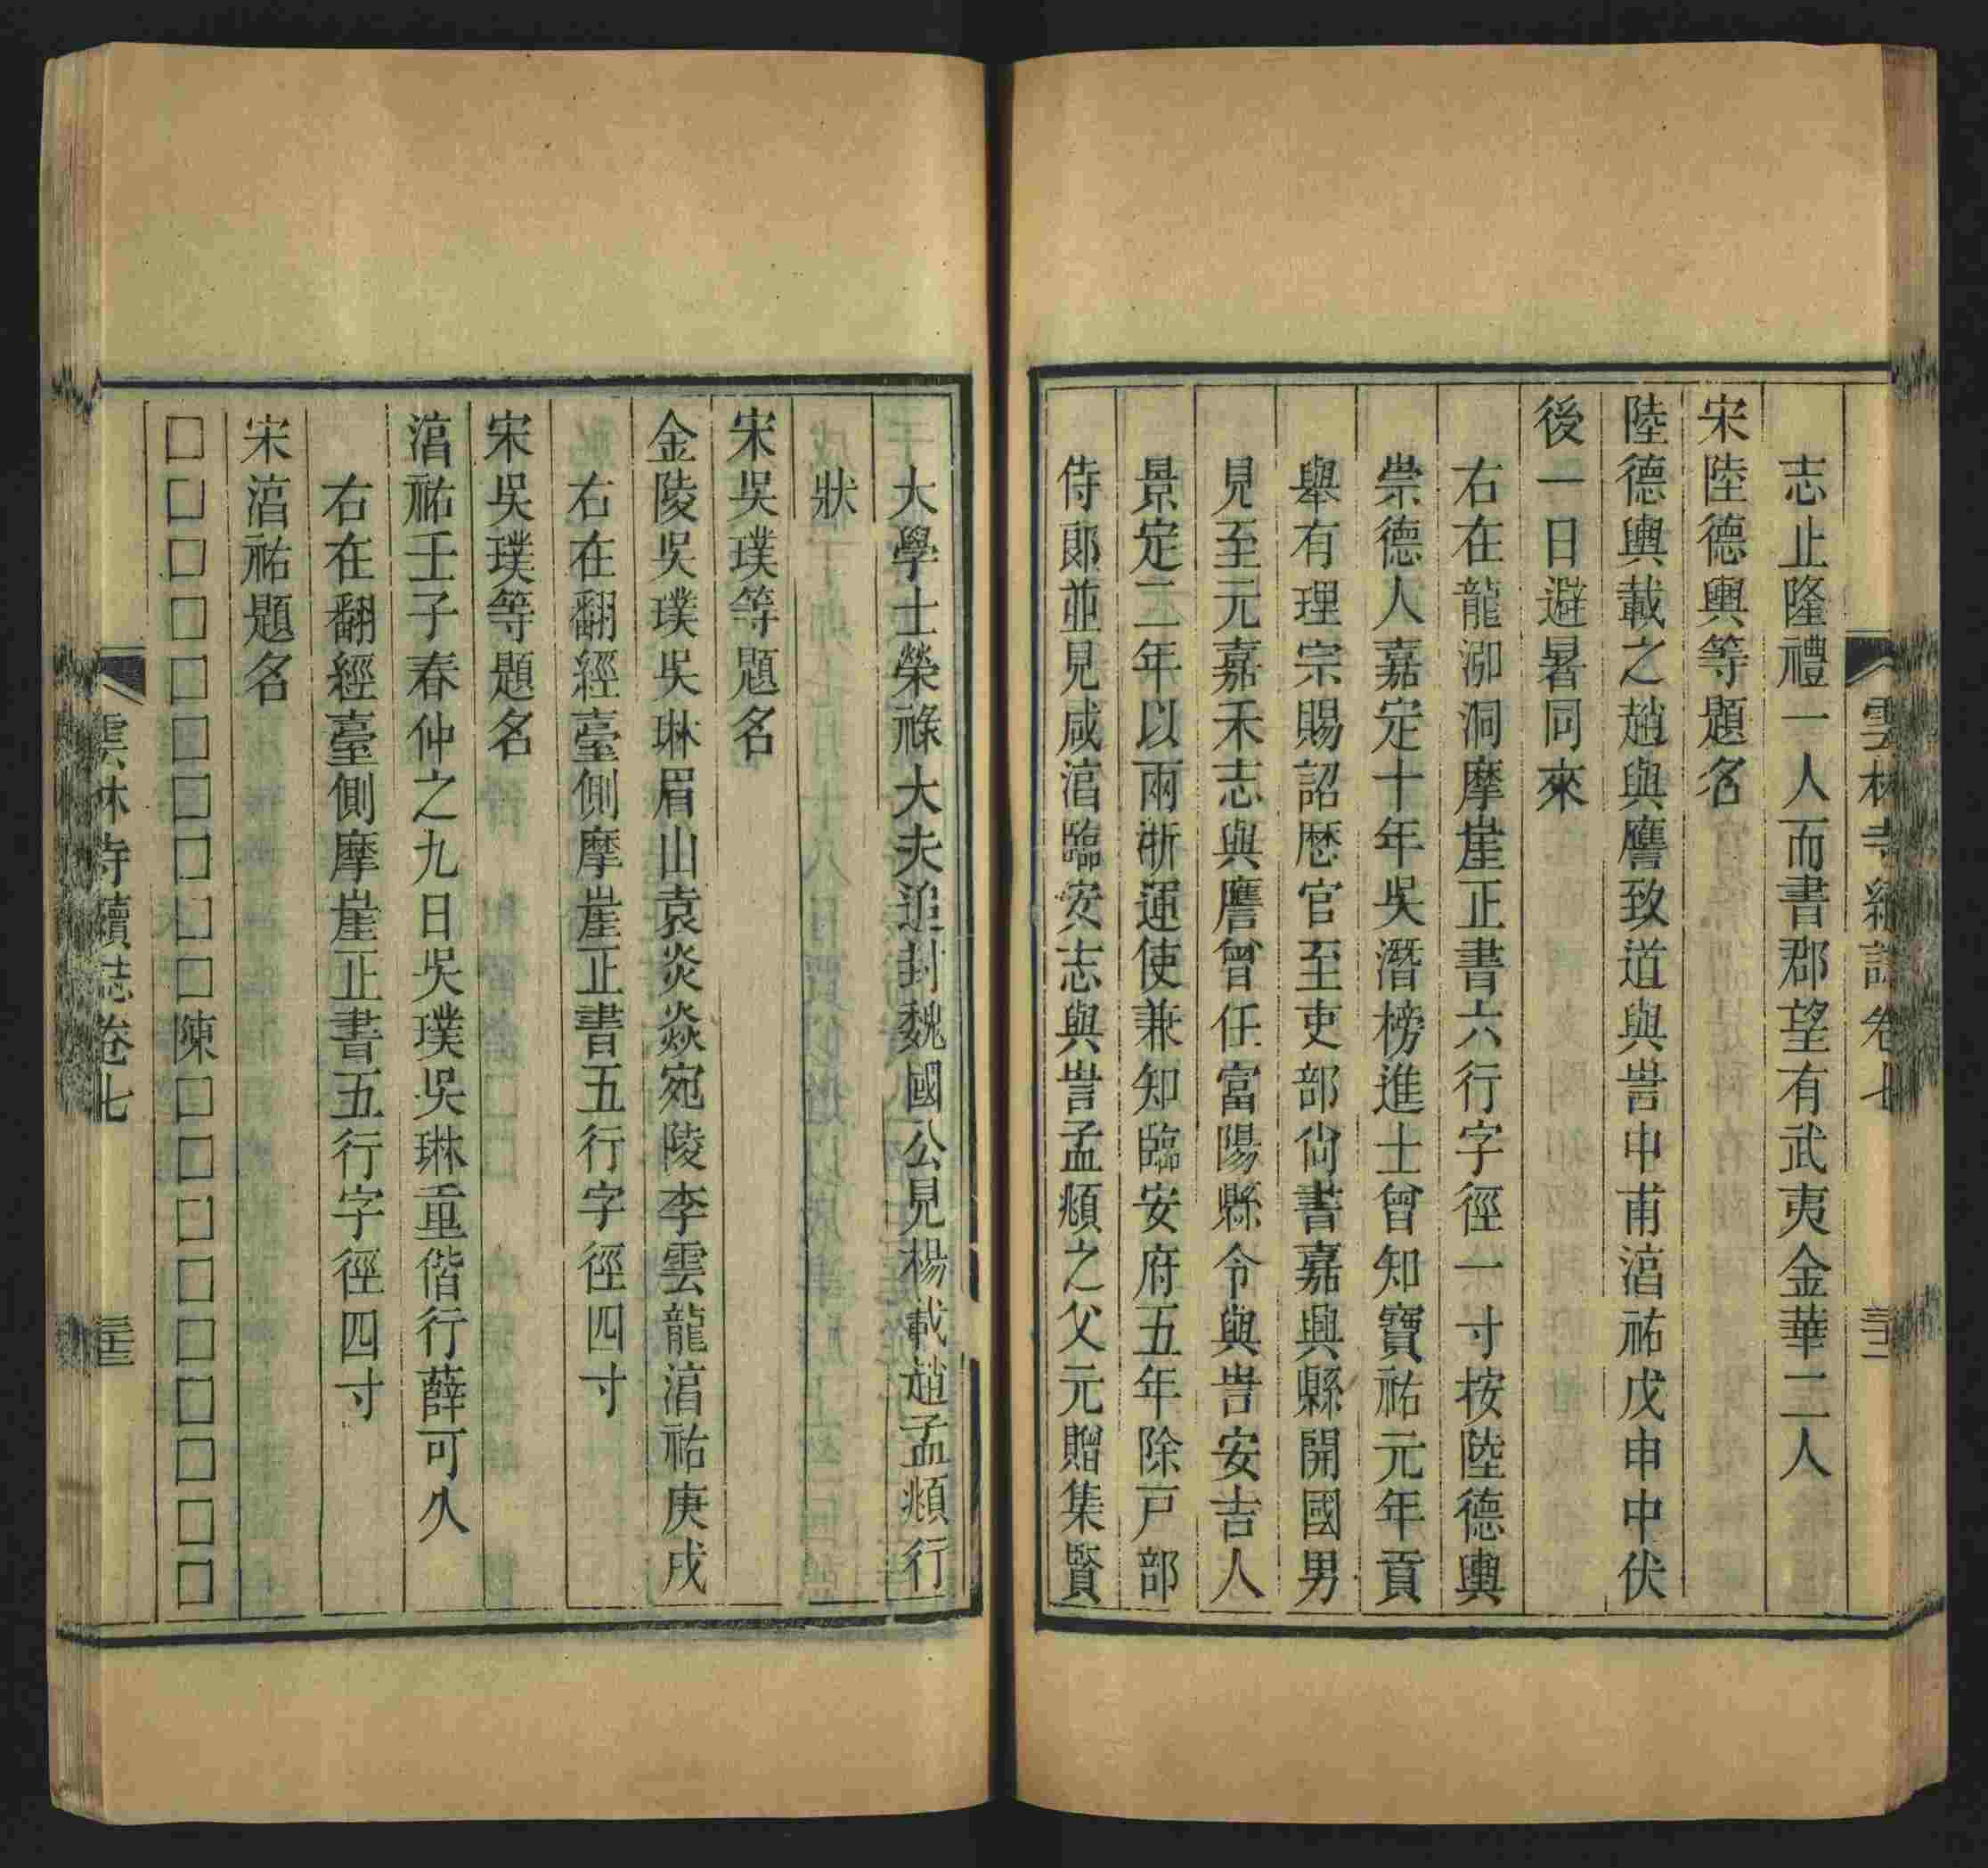 雲林寺續誌卷七
三十一
志止隆禮一人而書郡望有武夷金華二人
宋陸德輿等題名
陸德輿載之趙與譍致道與訔中甫湻祐戊申中伏
後一日避暑同來
右在龍泓洞摩崖正書六行字徑一寸按陸德輿
崇德人嘉定十年吳潛榜進士曾知寶祐元年貢
舉有理宗賜詔歷官至吏部尚書嘉興縣開國男
見至元嘉禾志與譍曾任富陽縣令與訔安吉人
景定二年以兩浙運使兼知臨安府五年除戸部
侍郞並見咸湻臨安志與訔孟頫之父元贈集賢
大學士榮祿大夫追封魏國公見楊載趙孟頫行
狀
宋吳璞等題名
金陵吳璞吳琳眉山袁炎焱宛陵李雲龍湻祐庚戌
右在翻經臺側摩崖正書五行字徑四寸
宋吳璞等題名
湻祐壬子春仲之九日吳璞吳琳重偕行薛可久
右在翻經臺側摩崖正書五行字徑四寸
宋湻祐題名
□□□□□□□□□□陳□□□□□□□□□
雲林寺續誌卷七